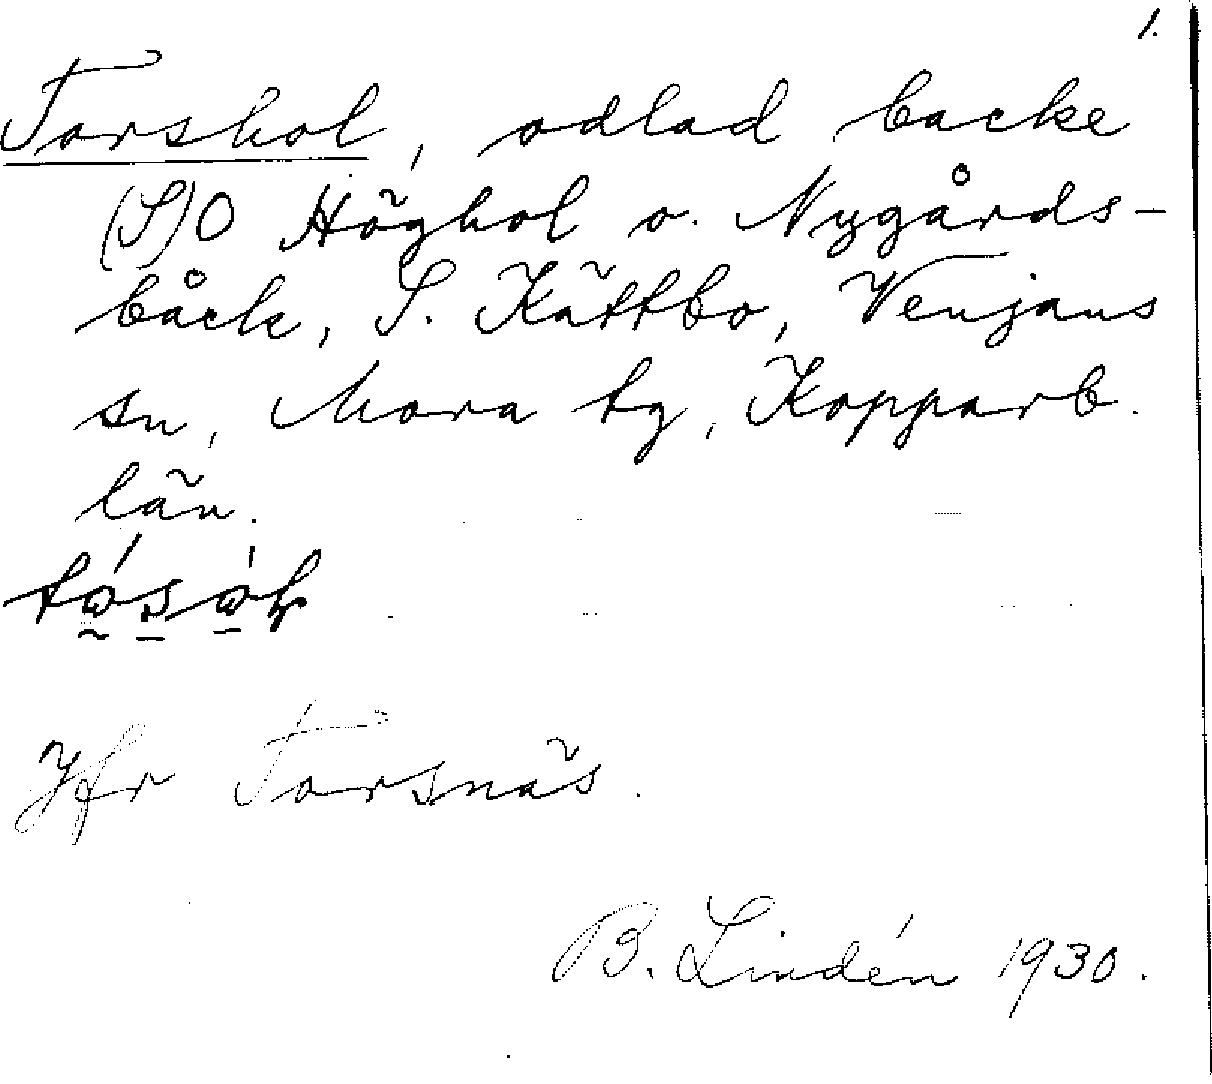 1.
Torshol, odlad backe
(S)O Höghol o. Nygårds-
båck, S. Kättbo, Venjans
sn, Mora tg, Kopparb.
län.
Jfr Torsnäs.
B. Lindén 1930.